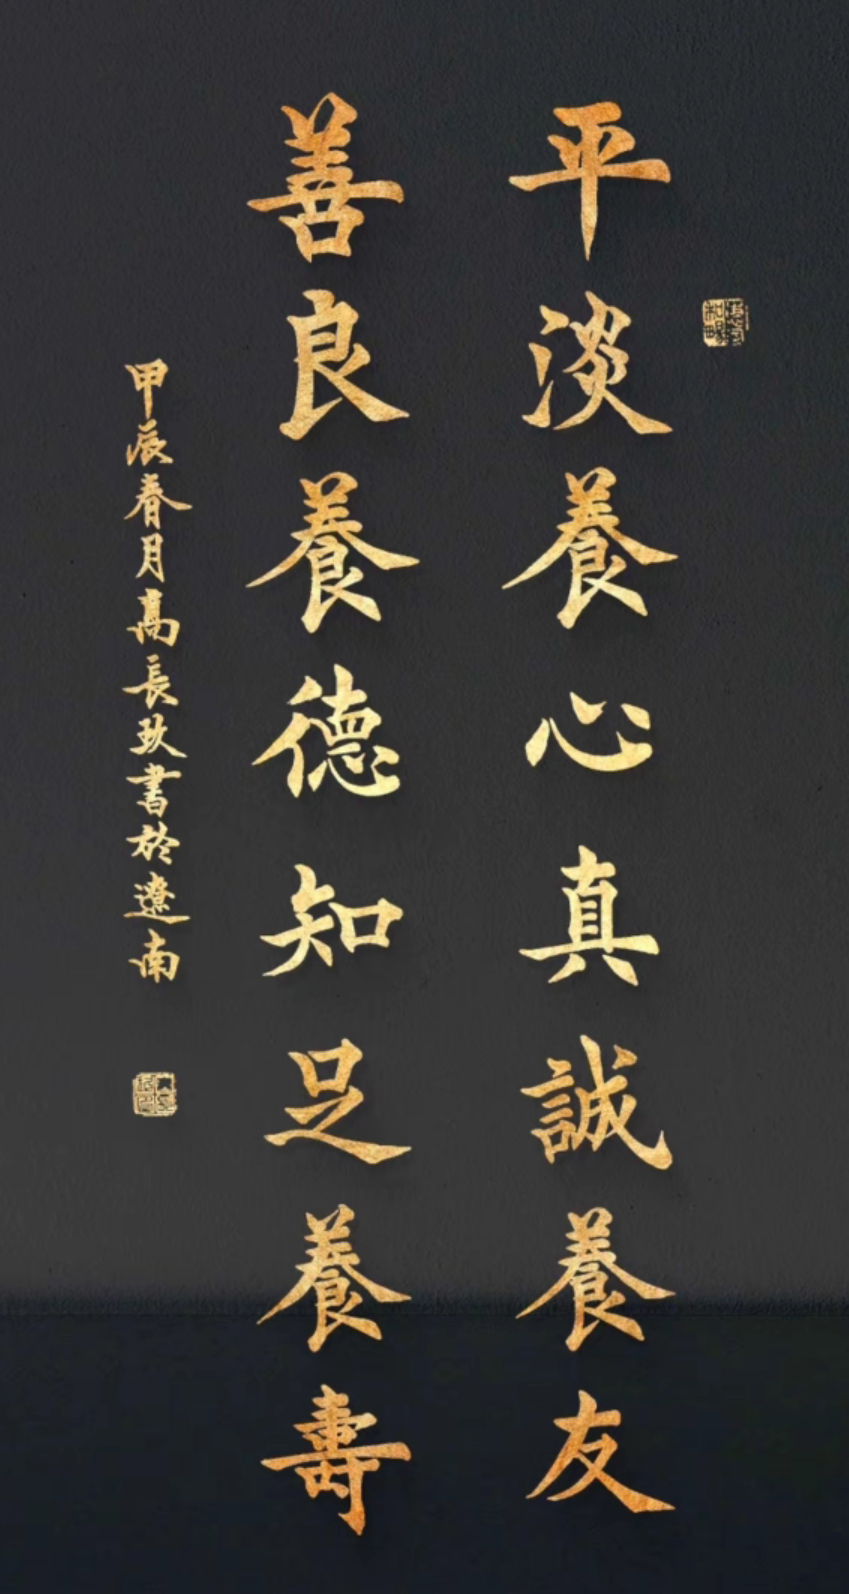 平淡養心真誠養友
善良養德知足養壽
甲辰春月高長玖書於遼南